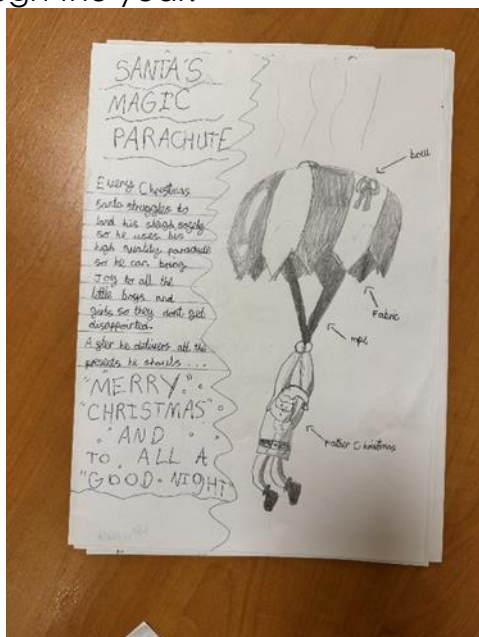 SANTA'S
MAGIC
PARACHUTE
Every Christmas
santa struggles to
land his sleigh safely
so he uses his
high quality parachute
so he can bring
Joy to all the
little boys and
girls so they dont get
disappointed.
After he delivers all the
presents he shouts ...
"MERRY
CHRISTMAS"
AND
TO ALL A
"GOOD NIGHT"
bow
Fabric
rope
Father Christmas